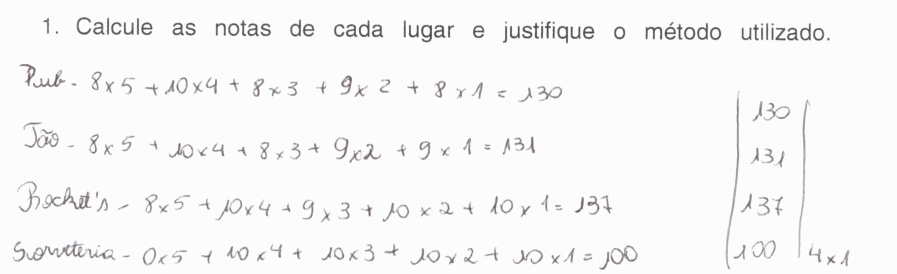 1. Calcule as notas de cada lugar e justifique o método utilizado.
Pub - 8x5 + 10x4 + 8x3 + 9x2 + 8x1 = 130
Jão - 8x5 + 10x4 + 8x3 + 9x2 + 9x1 = 131
Rocket's - 8x5 + 10x4 + 9x3 + 10x2 + 10x1 = 137
Sorveteria - 0x5 + 10x4 + 10x3 + 10x2 + 10x1 = 100
130
131
137
100 4x1